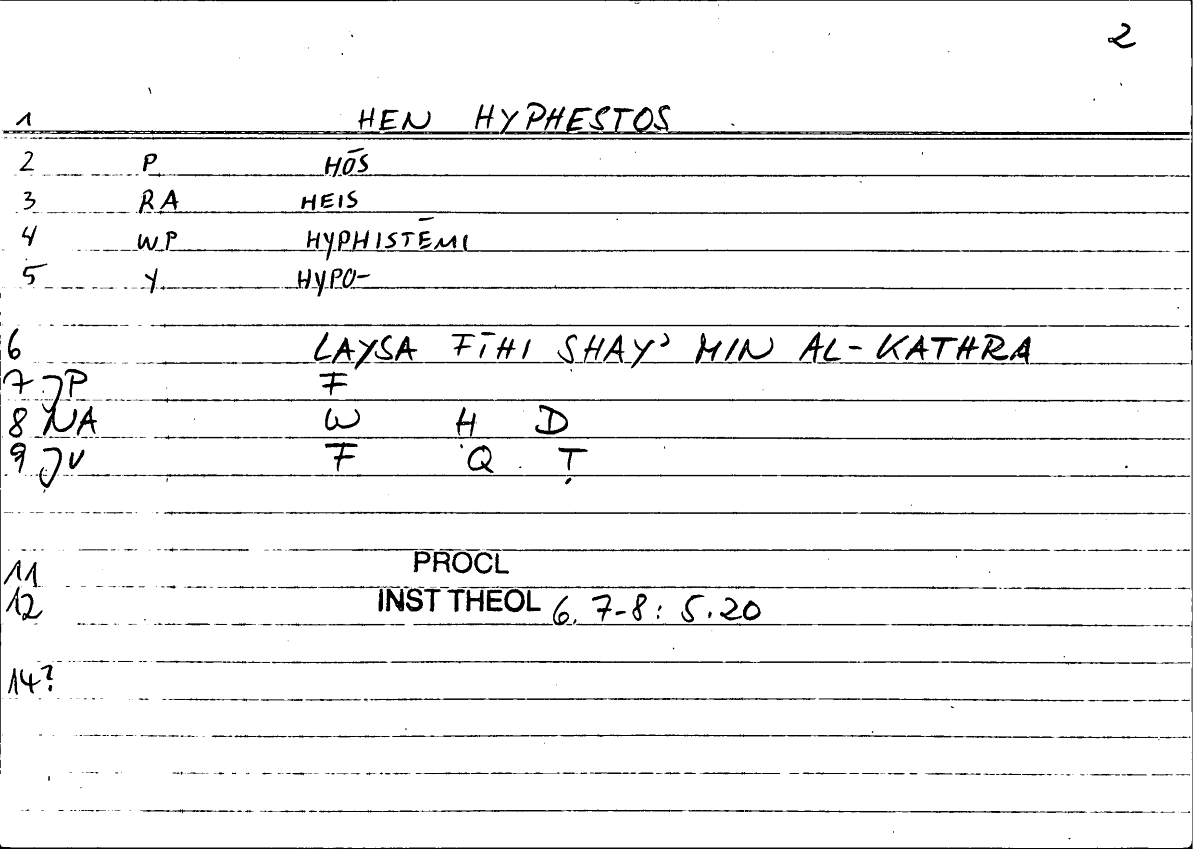 2
1 HEN HYPHESTOS
2 P HŌS
3 RA HEIS
4 WP HYPHISTĒMI
5 Y HYPO-
6 LAYSA FĪHI SHAYʾ MIN AL-KATHRA
7 JP F
8 NA W H D
9 JV F Q Ṭ
11 PROCL
12 INST THEOL 6. 7-8: 5.20
14?